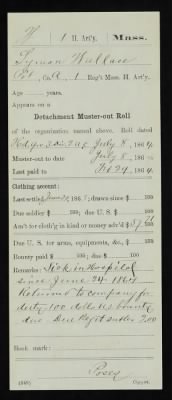 W 1 H. Art'y. Mass.
Lyman Wallace
Pvt, Co. A, 1 Reg't Mass. H. Art'y.
Age years.
Appears on a
Detachment Muster-out Roll
of the organization named above. Roll dated
July 8, 1864
Muster-out to date July 8, 1864
Last paid to Feb 29, 1864
Clothing account:
Last settled , 186 ; drawn since $ 100
Due soldier $ 100; due U. S. $ 100
Am't for cloth'g in kind or money adv'd $ 100
Due U. S. for arms, equipments, &c., $ 100
Bounty paid $ 100; due $ 100
Remarks: Sick in Hospital
since June 24 1864
Returned to company for
duty 100 dollars bounty
due
Book mark:
(340) Copyist.